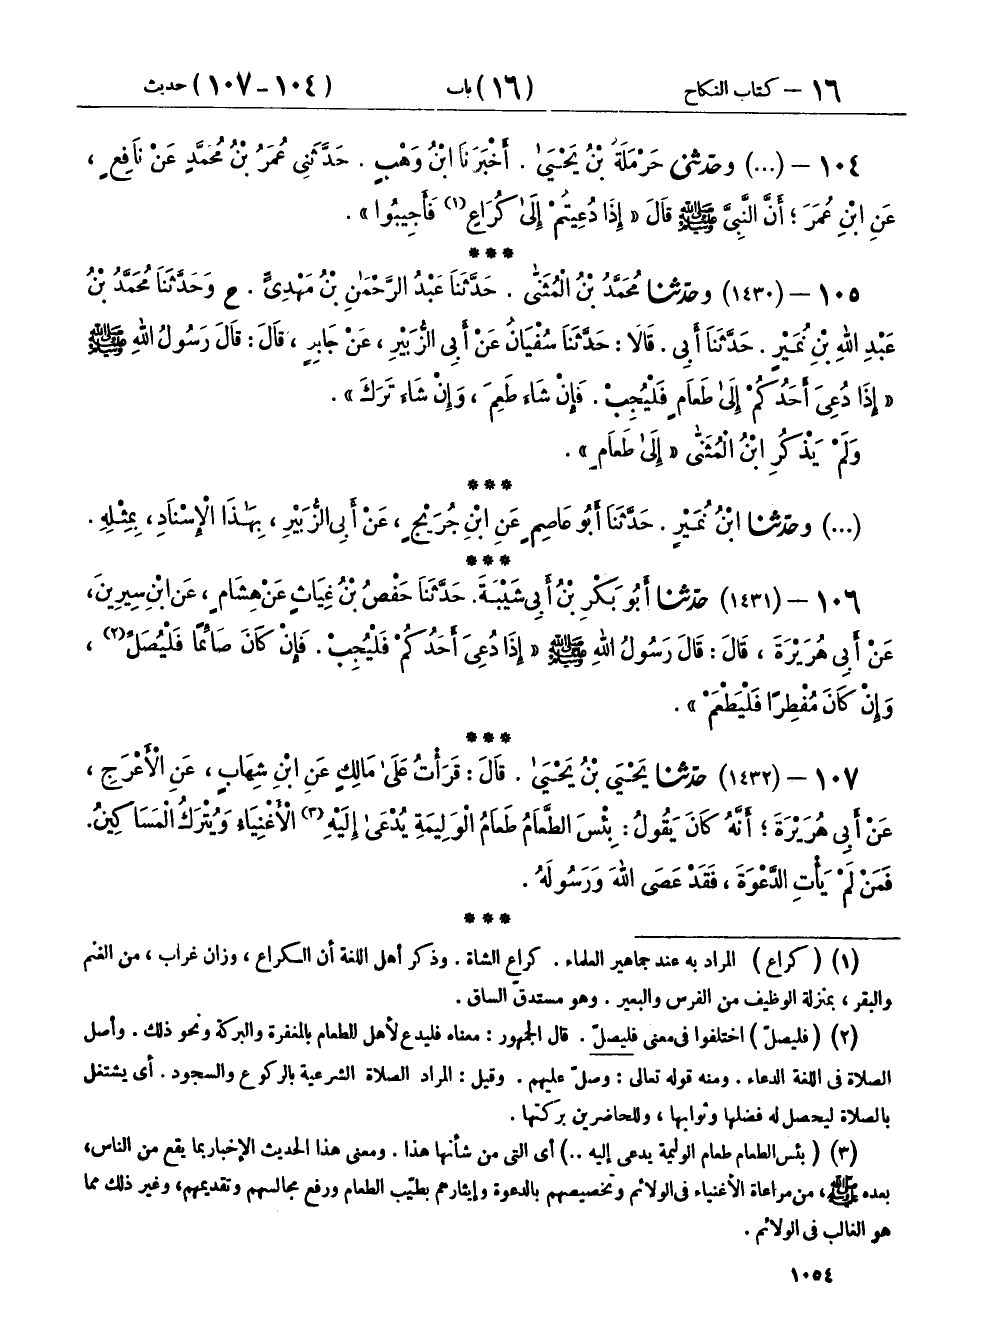 ١٦ – كتاب النكاح (١٦) باب (١٠٤-١٠٧) حديث
١٠٤ – (...) وحدّثنى حَرْمَلَةُ بْنُ يَحْيَىٰ . أَخْبَرَنَا ابْنُ وَهْبٍ . حَدَّثَنِي عُمَرُ بْنُ مُحَمَّدٍ عَنْ نَافِعٍ ،
عَنِ ابْنِ عُمَرَ ؛ أَنَّ النَّبِيَّ ﷺ قَالَ « إِذَا دُعِيتُمْ إِلَىٰ كُرَاعٍ(١) فَأَجِيبُوا » .
***
١٠٥ – (١٤٣٠) وحدّثنا مُحَمَّدُ بْنُ الْمُثَنَّىٰ . حَدَّثَنَا عَبْدُ الرَّحْمَٰنِ بْنُ مَهْدِىٍّ . ح وَحَدَّثَنَا مُحَمَّدُ بْنُ
عَبْدِ اللهِ بْنِ نُمَيْرٍ . حَدَّثَنَا أَبِى . قَالَا : حَدَّثَنَا سُفْيَانُ عَنْ أَبِى الزُّبَيْرِ ، عَنْ جَابِرٍ ، قَالَ : قَالَ رَسُولُ اللهِ ﷺ
« إِذَا دُعِىَ أَحَدُكُمْ إِلَىٰ طَعَامٍ فَلْيُجِبْ . فَإِنْ شَاءَ طَعِمَ ، وَإِنْ شَاءَ تَرَكَ » .
وَلَمْ يَذْكُرِ ابْنُ الْمُثَنَّى « إِلَىٰ طَعَامٍ » .
***
(...) وحدّثنا ابْنُ نُمَيْرٍ . حَدَّثَنَا أَبُو عَاصِمٍ عَنِ ابْنِ جُرَيْجٍ ، عَنْ أَبِى الزُّبَيْرِ ، بِهَٰذَا الْإِسْنَادِ ، بِمِثْلِهِ .
***
١٠٦ – (١٤٣١) حدّثنا أَبُو بَكْرِ بْنُ أَبِى شَيْبَةَ. حَدَّثَنَا حَفْصُ بْنُ غِيَاثٍ عَنْ هِشَامٍ ، عَنِ ابْنِ سِيرِينَ،
عَنْ أَبِى هُرَيْرَةَ ، قَالَ : قَالَ رَسُولُ اللهِ ﷺ « إِذَا دُعِىَ أَحَدُكُمْ فَلْيُجِبْ . فَإِنْ كَانَ صَائِمًا فَلْيُصَلِّ(٢) ،
وَإِنْ كَانَ مُفْطِرًا فَلْيَطْعَمْ » .
***
١٠٧ – (١٤٣٢) حدّثنا يَحْيَىٰ بْنُ يَحْيَىٰ . قَالَ : قَرَأْتُ عَلَىٰ مَالِكٍ عَنِ ابْنِ شِهَابٍ ، عَنِ الْأَعْرَجِ ،
عَنْ أَبِى هُرَيْرَةَ ؛ أَنَّهُ كَانَ يَقُولُ : بِئْسَ الطَّعَامُ طَعَامُ الْوَلِيمَةِ يُدْعَىٰ إِلَيْهِ(٣) الْأَغْنِيَاءُ وَيُتْرَكُ الْمَسَاكِينُ.
فَمَنْ لَمْ يَأْتِ الدَّعْوَةَ ، فَقَدْ عَصَى اللهَ وَرَسُولَهُ .
***
(١) ( كراع ) المراد به عند جماهير العلماء . كراع الشاة . وذكر أهل اللغة أن الكراع ، وزان غراب ، من الغنم
والبقر ، بمنزلة الوظيف من الفرس والبعير . وهو مستدقّ الساق .
(٢) ( فليصلّ ) اختلفوا فى معنى فليصلّ . قال الجمهور : معناه فليدع لأهل للطعام بالمغفرة والبركة ونحو ذلك . وأصل
الصلاة فى اللغة الدعاء . ومنه قوله تعالى : وصلّ عليهم . وقيل : المراد الصلاة الشرعية بالركوع والسجود . أى يشتغل
بالصلاة ليحصل له فضلها وثوابها ، وللحاضرين بركتها .
(٣) ( بئس الطعام طعام الوليمة يدعى إليه .. ) أى التى من شأنها هذا . ومعنى هذا الحديث الإخبار بما يقع من الناس،
بعده ﷺ، من مراعاة الأغنياء فى الولائم وتخصيصهم بالدعوة وإيثارهم بطيّب الطعام ورفع مجالسهم وتقديمهم، وغير ذلك مما
هو الغالب فى الولائم .
١٠٥٤